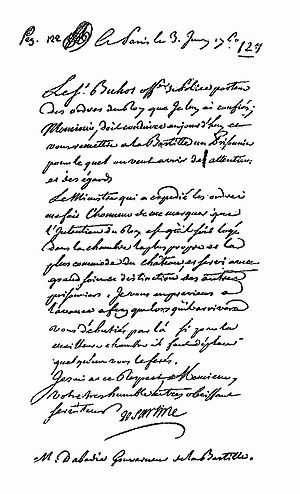 Pag. 122 a Paris le 3. Juin 176
127
Le Sr. Buhot offr. de Police porteur
des ordres du Roy que je luy ai confiés,
Monsieur, doit conduire aujourd'huy et
vous remettre a la Bastille un Prisonnier
pour le quel on veut avoir des attentions
et des égards
Le Ministre qui a expedié les ordres
me fait l'honneur de me marquer que
l'Intention du Roy est qu'il soit logé
dans la chambre la plus propre et la
plus commode du château et servi avec
grand soin et distinction des autres
prisonniers. Je vous en previens a
l'avance afin que lorsqu'il arrivera
vous débutiés par là si pour la
meilleure chambre il faut déplacer
quelqu'un vous le ferés.
Je suis avec Respect Monsieur,
Votre tres humble et tres obeissant
serviteur
de Sartine
M. Dabadie Gouverneur de la Bastille.